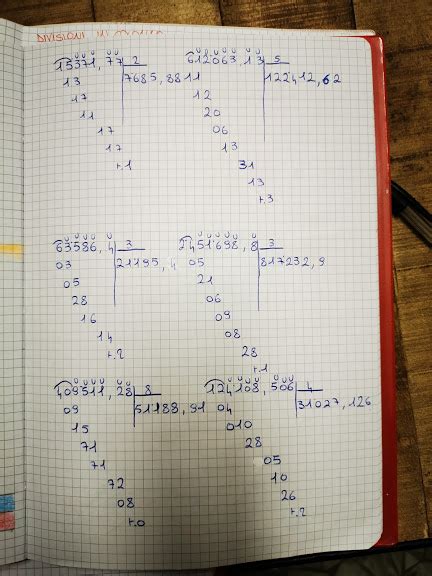 DIVISIONI IN
15371,77 2
7685,88
13
17
11
17
17
r.1
612063,13 5
122412,62
11
12
20
06
13
31
13
r.3
63586,4 3
21195,4
03
05
28
16
14
r.2
2451698,8 3
817232,9
05
21
06
09
08
28
r.1
409511,28 8
51188,91
09
15
71
71
72
08
r.0
124108,506 4
31027,126
04
010
28
05
10
26
r.2